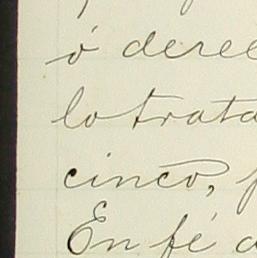 ó derec
lo trata
cinco,
En fé